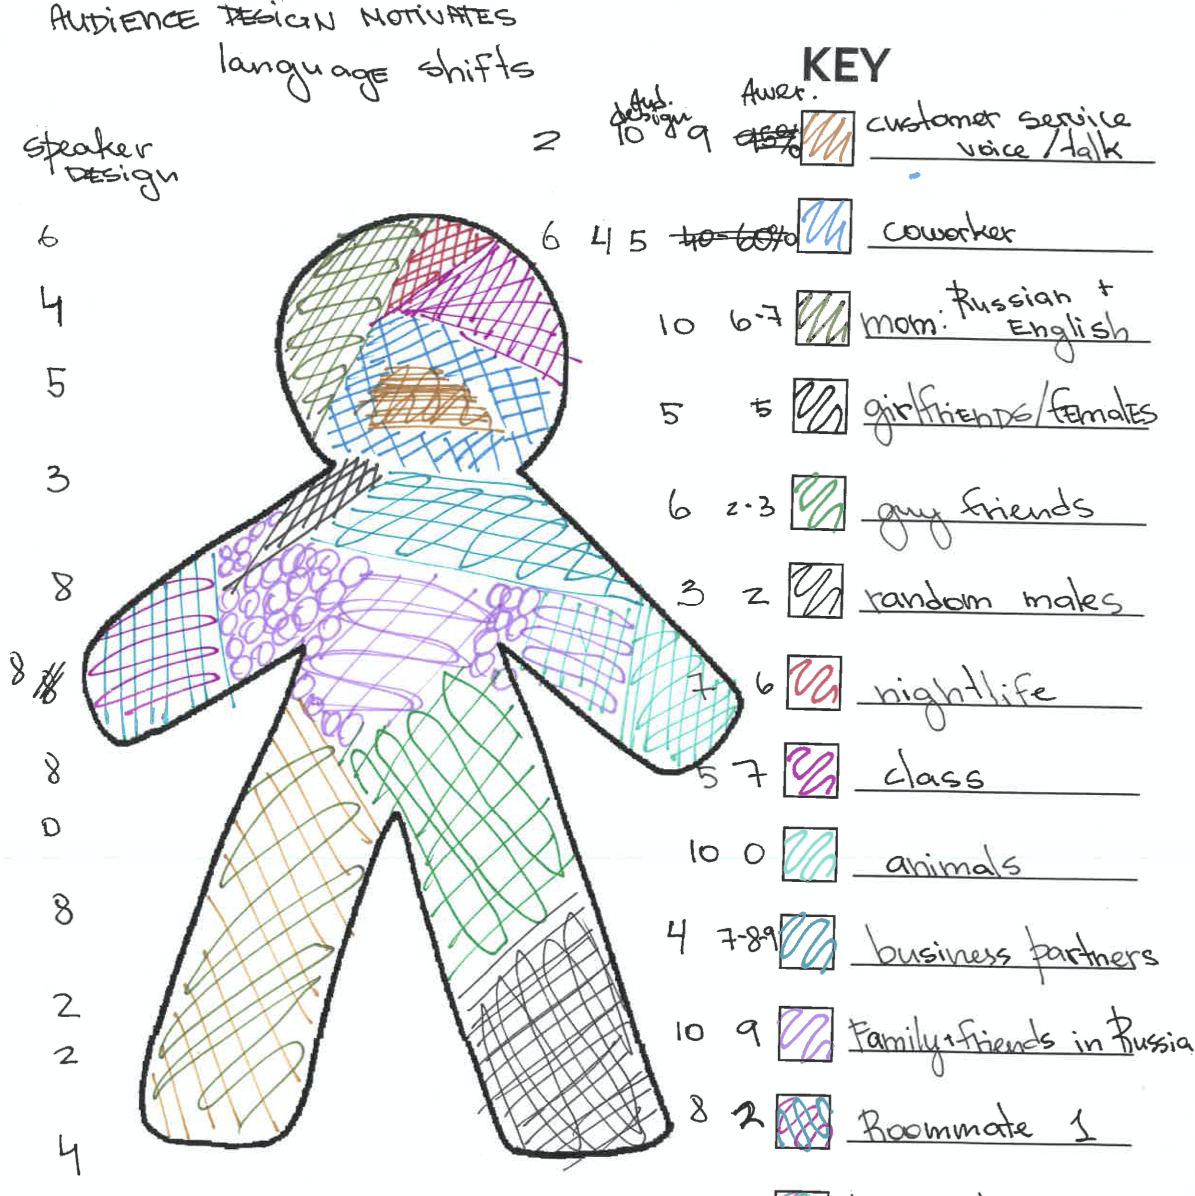 AUDIENCE DESIGN MOTIVATES
language shifts
KEY
speaker
DESIGN
Aud.
design
Awer.
2 10 9 customer service
voice / talk
6 6 4 5 40-60% coworker
4 10 6-7 mom: Russian +
English
5 5 5 girlfriends/females
3 6 2-3 guy friends
8 3 2 random males
8 7 6 nightlife
8 5 7 class
0 10 0 animals
8 4 7-8-9 business partners
2 10 9 Family+friends in Russia
2 8 2 Roommate 1
4